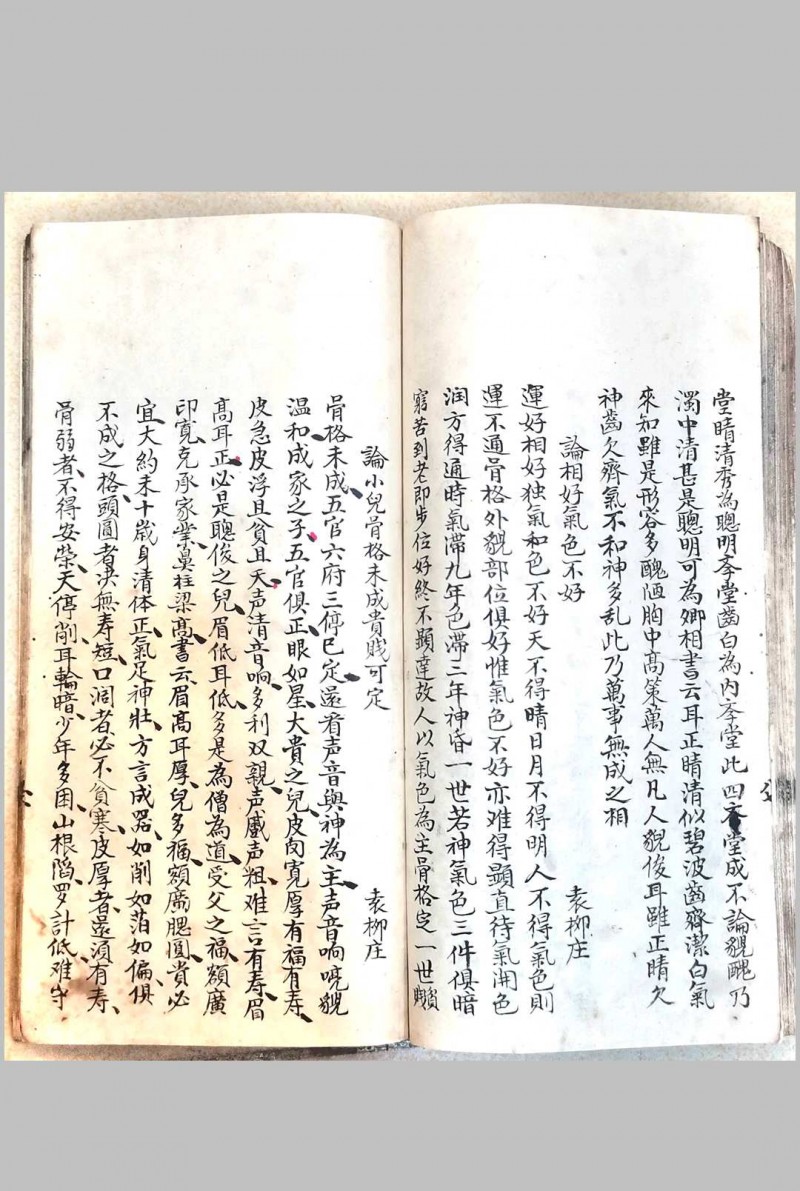 堂睛清秀為聰明斈堂齒白為内斈堂此四斈堂成不論貌醜乃
濁中清甚是聰明可為卿相書云耳正睛清似碧波齒齊潔白氣
來知雖是形容多醜陋胸中髙策萬人無凡人貌俊耳雖正睛欠
神齒欠齊氣不和神多乱此乃萬事無成之相
論相好氣色不好
袁柳庄
運好相好独氣和色不好天不得晴日月不得明人不得氣色則
運不通骨格外貌部位俱好惟氣色不好亦难得顕直待氣開色
润方得通時氣滞九年色滞三年神昏一世若神氣色三件俱暗
窮苦到老即步位好終不顕達故人以氣色為主骨格定一世貧賤
論小兒骨格未成貴賤可定
袁柳庄
骨格未成五官六府三停已定還看声音與神為主声音响嘅貌
温和成家之子五官俱正眼如星大貴之兒皮肉寛厚有福有寿
皮急皮浮且貧且夭声清音响多利双親声盛声粗难言有寿眉
髙耳正必是聰俊之兒眉低耳低多是為僧為道受父之福額廣
印寛克承家業鼻柱梁髙書云眉髙耳厚兒多福額廣腮圓貴必
宜大約未十歲身清体正氣足神壯方言成器如削如萡如偏俱
不成之格頭圓者决無寿短口濶者必不貧寒皮厚者還須有寿
骨弱者不得安榮天停削耳輪暗少年多困山根陷罗計低难守